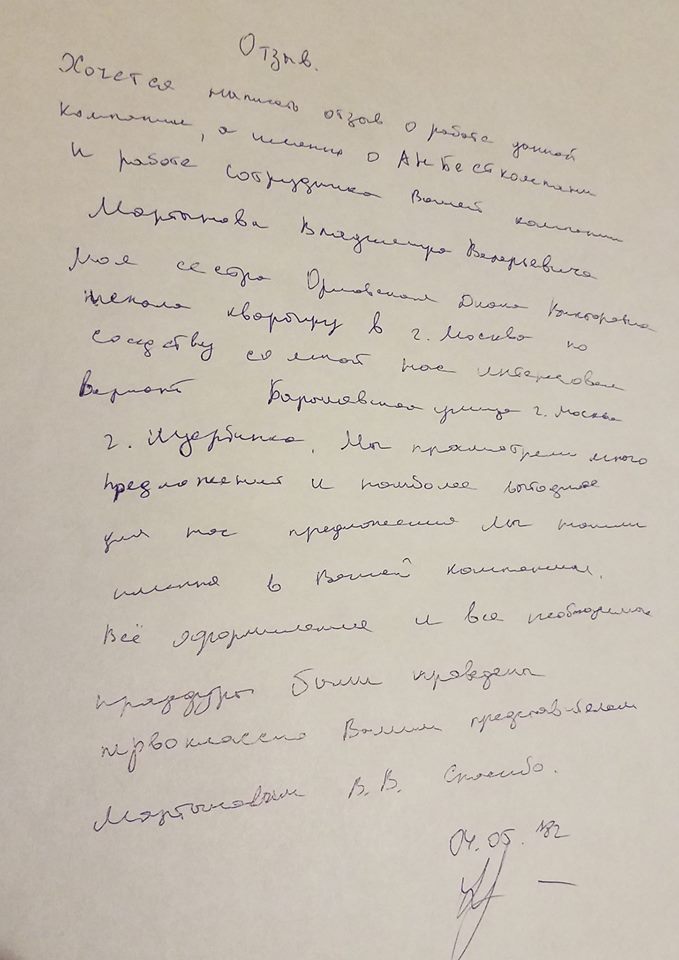 Отзыв.
Хочется написать отзыв о работе данной
компании, а именно о АН Бест компани
И работе сотрудника Вашей компании
Мартынова Владимира Валерьевича
Моя сестра Диана Викторовна
искала квартиру в г. Москва по
соседству со мной нас интересовал
Вариант улица г. Москва
г. Щербинка. Мы просмотрели много
предложений и наиболее выгодное
для нас предложения мы нашли
именно в Вашей компании.
Всё оформление и все необходимые
процедуры были проведены
первоклассно Вашим представителем
Мартыновым В.В. Спасибо.
04.05.